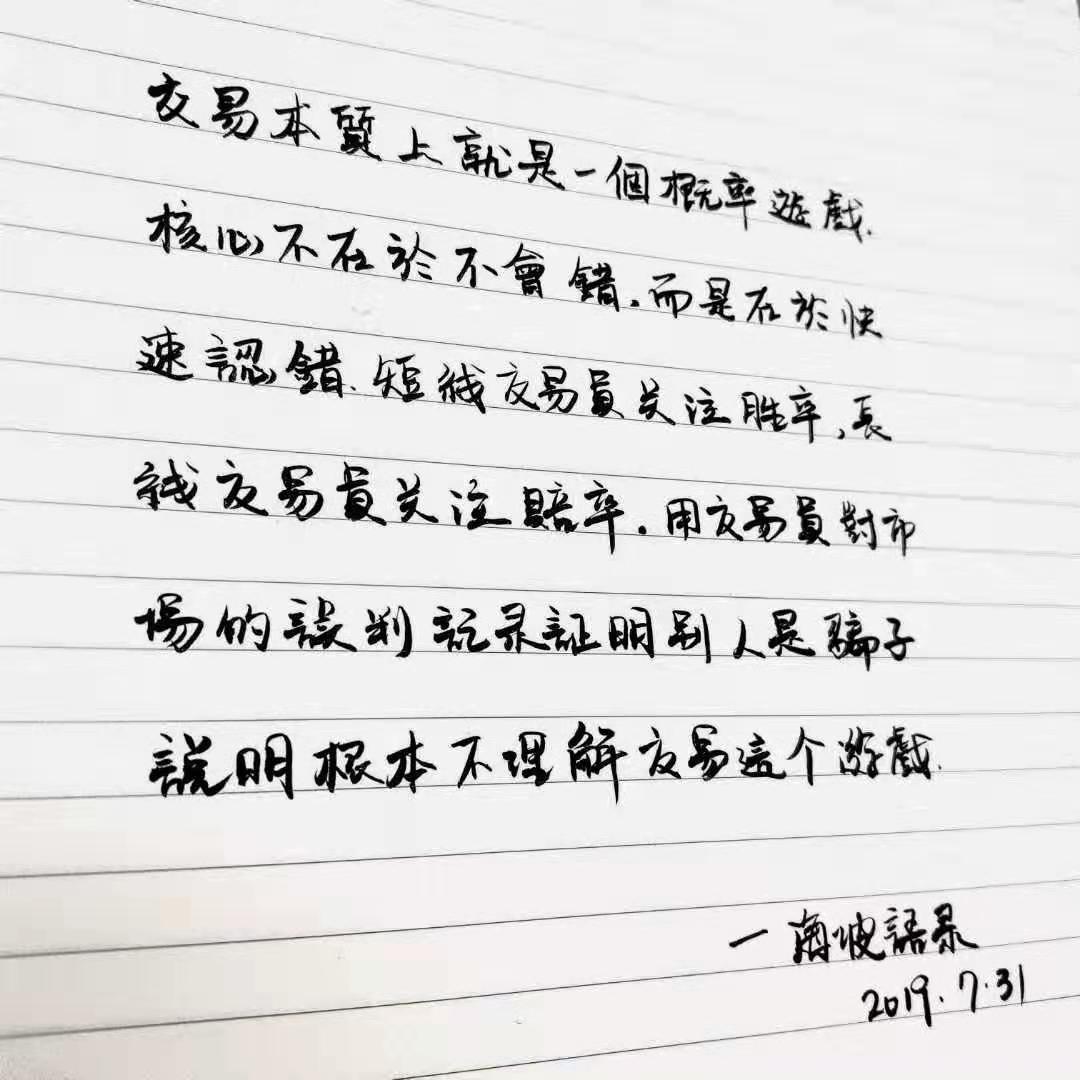 交易本質上就是一個概率遊戲.
核心不在於不會錯.而是在於快
速認錯.短綫交易員关注胜率,長
綫交易員关注賠率.用交易員對市
場的誤判記录証明别人是騙子
説明根本不理解交易這个遊戲.
一南坡語录
2019.7.31